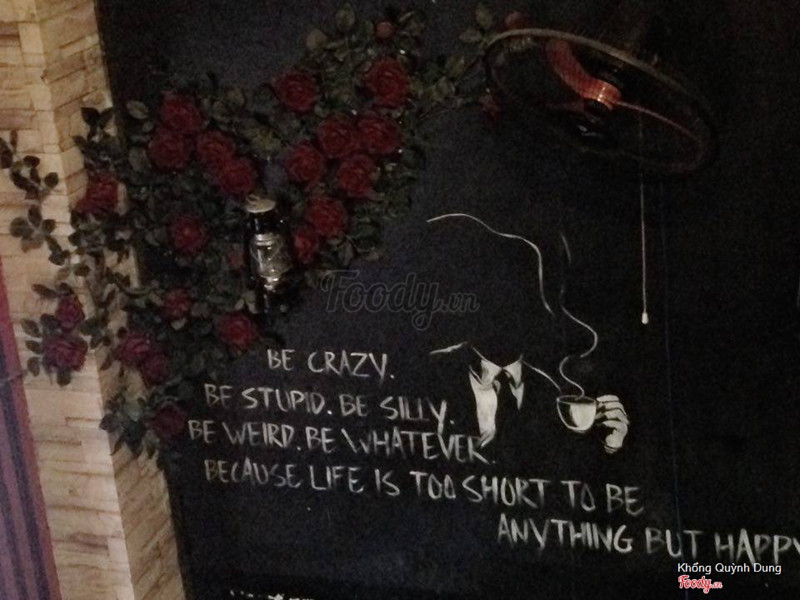 Foody.vn
BE CRAZY.
BE STUPID. BE SILLY.
BE WEIRD. BE WHATEVER.
BECAUSE LIFE IS TOO SHORT TO BE
ANYTHING BUT HAPPY
Khổng Quỳnh Dung
Foody.vn